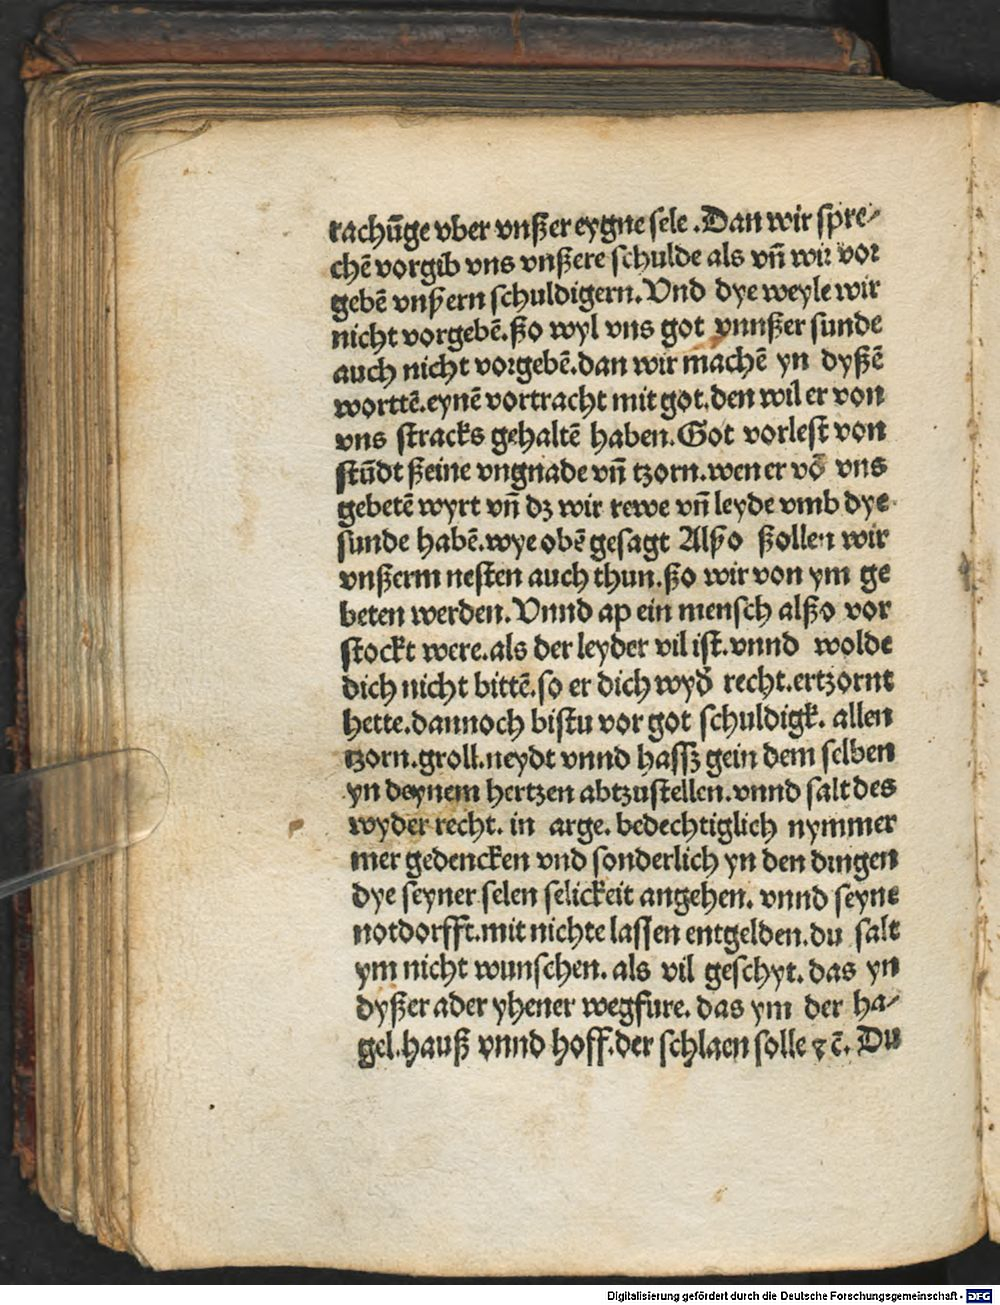 rachūge vber vnßer eygne sele .Dan wir spre⸗
chē vorgib vns vnßere schulde als vn̄ wir vor
gebē vnßern schuldigern. Vnd dye weyle wir
nicht vorgebē. ßo wyl vns got vnnßer sunde
auch nicht vorgebē. dan wir machē yn dyßē
worttē. eynē vortracht mit got. den wil er von
vns stracks gehaltē haben. Got vorlest von
stūdt ßeine vngnade vn̄ tzorn. wen er vō vns
gebetē wyrt vn̄ dz wir rewe vn̄ leyde vmb dye
sunde habē. wye obē gesagt Alßo ßollen wir
vnßerm nesten auch thun. ßo wir von ym ge
beten werden. Vnnd ap ein mensch alßo vor
stockt were. als der leyder vil ist. vnnd wolde
dich nicht bittē. so er dich wyd̄ recht. ertzornt
hette. dannoch bistu vor got schuldigk. allen
tzorn. groll. neydt vnnd hassz gein dem selben
yn deynem hertzen abtzustellen. vnnd salt des
wyder recht. in arge. bedechtiglich nymmer
mer gedencken vnd sonderlich yn den dingen
dye seyner selen selickeit angehen. vnnd seyne
notdorfft. mit nichte lassen entgelden. du salt
ym nicht wunschen. als vil geschyt. das yn
dyßer ader yhener wegfure. das ym der ha⸗
gel. hauß vnnd hoff. der schlaen solle ⁊c̄. Du
Digitalisierung gefördert durch die Deutsche Forschungsgemeinschaft - DFG